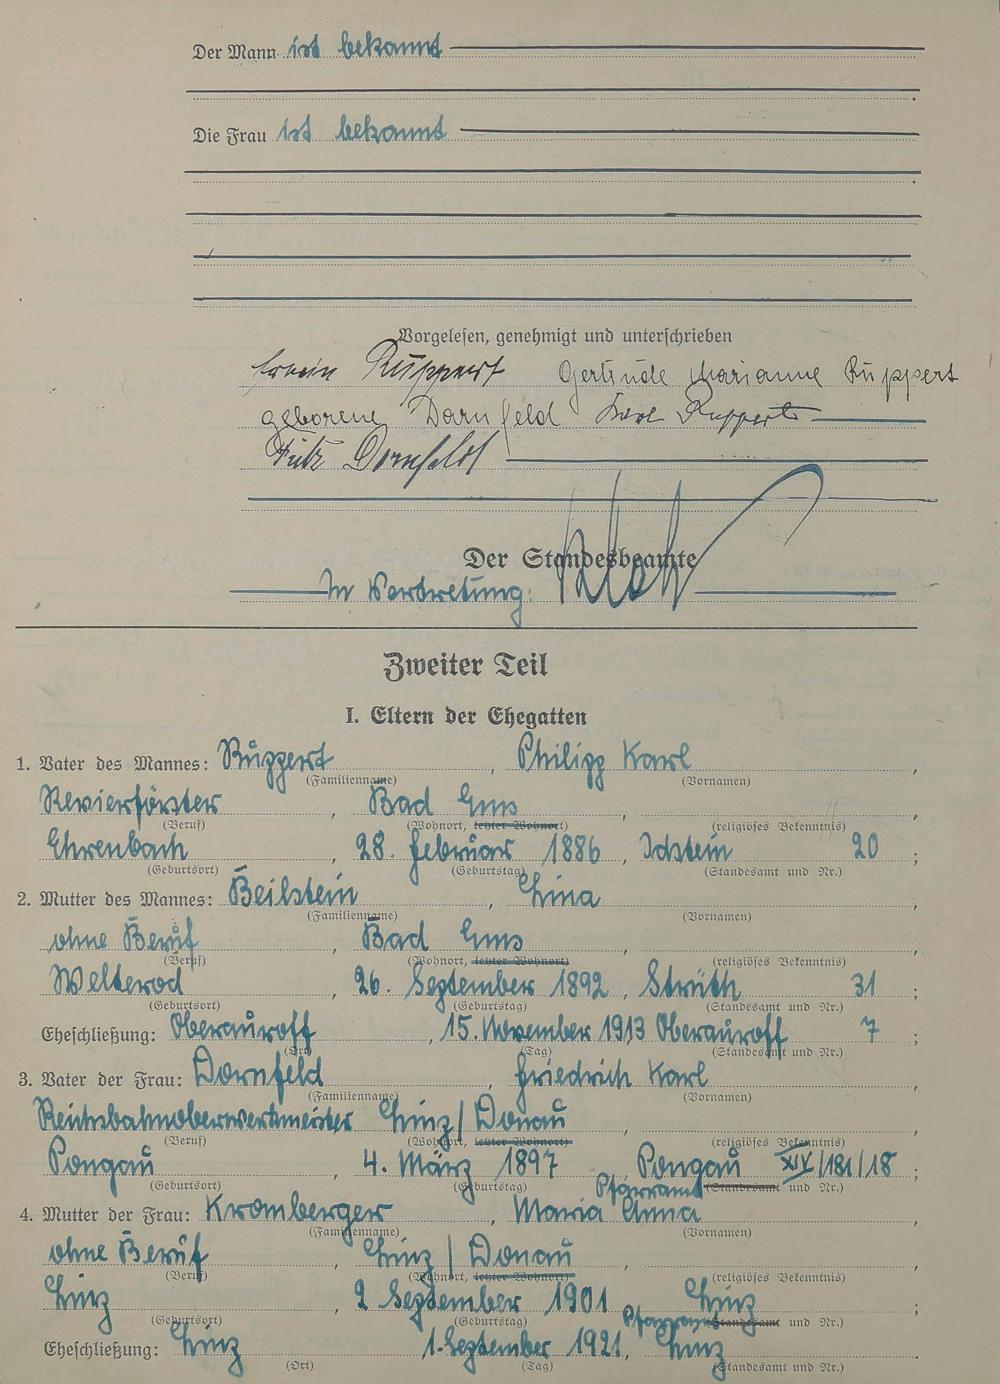 Der Mann ist bekannt
Die Frau ist bekannt
Vorgelesen, genehmigt und unterschrieben
Erwin Ruppert Gertrude Marianne Ruppert
geborene Dornfeld Karl Ruppert
Fritz Dornfeld
Der Standesbeamte
In Vertretung:
Zweiter Teil
I. Eltern der Ehegatten
1. Vater des Mannes: Ruppert, Philipp Karl,
(Familienname) (Vornamen)
Revierförster, Bad Ems,
(Beruf) (Wohnort, letzter Wohnort) (religiöses Bekenntnis)
Ehrenbach, 28. Februar 1886, Idstein 20;
(Geburtsort) (Geburtstag) (Standesamt und Nr.)
2. Mutter des Mannes: Beilstein, Lina,
(Familienname) (Vornamen)
ohne Beruf, Bad Ems,
(Beruf) (Wohnort, letzter Wohnort) (religiöses Bekenntnis)
Welterod, 26. September 1892, Strüth 31;
(Geburtsort) (Geburtstag) (Standesamt und Nr.)
Eheschließung: Oberauroff, 15. November 1913 Oberauroff 7;
(Ort) (Tag) (Standesamt und Nr.)
3. Vater der Frau: Dornfeld, Friedrich Karl,
(Familienname) (Vornamen)
Reichsbahnoberwerkmeister Linz/Donau,
(Beruf) (Wohnort, letzter Wohnort) (religiöses Bekenntnis)
Pongau, 4. März 1897, Pongau XIV/181/18;
(Geburtsort) (Geburtstag) Pfarramt (Standesamt und Nr.)
4. Mutter der Frau: Kromberger, Maria Anna,
(Familienname) (Vornamen)
ohne Beruf, Linz/Donau,
(Beruf) (Wohnort, letzter Wohnort) (religiöses Bekenntnis)
Linz, 2 September 1901 Linz;
(Geburtsort) (Geburtstag) Pfarramt (Standesamt und Nr.)
Eheschließung: Linz 1. September 1921, Linz.
(Ort) (Tag) (Standesamt und Nr.)